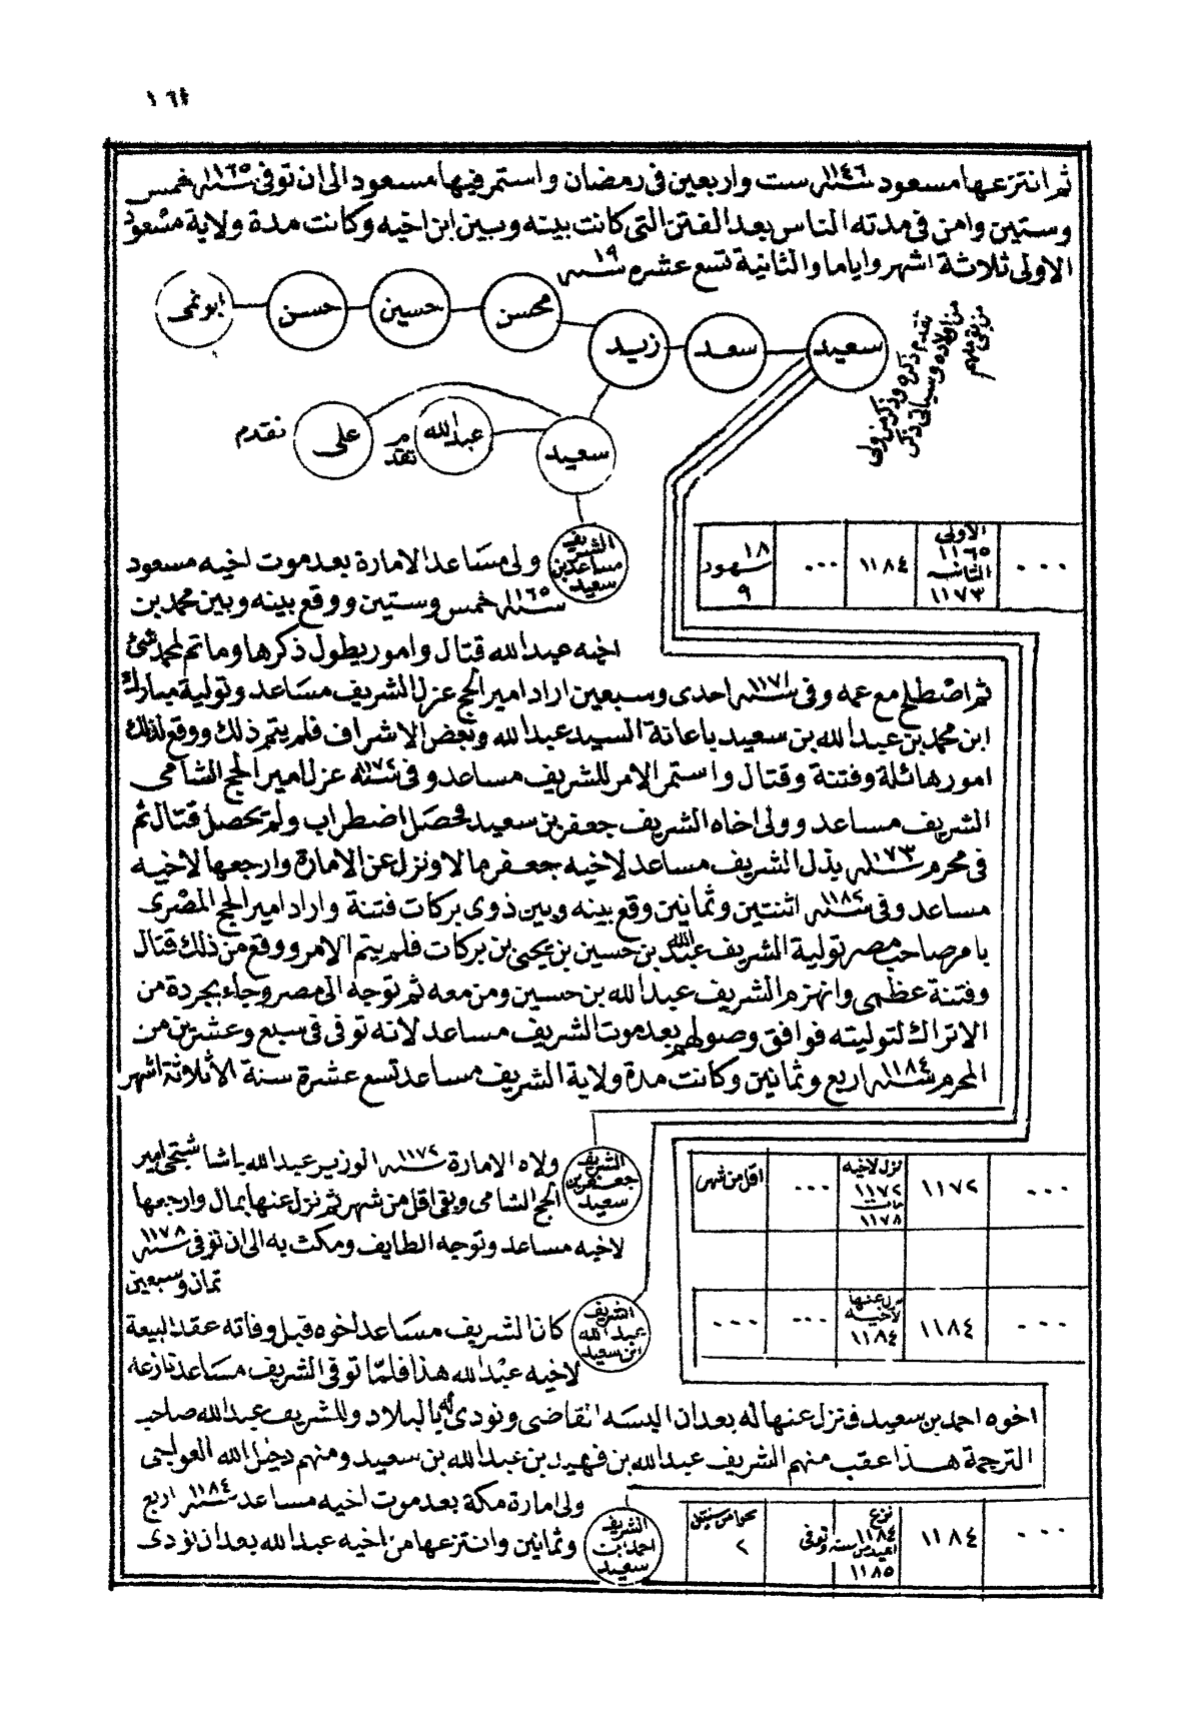 ١٦٤
ثم انتزعها مسعود سنة ١١٤٦ ست واربعين فى رمضان واستمر فيها مسعود الى ان توفى سنة ١١٦٥ خمس
وستين وامن فى مدته الناس بعد الفتن التى كانت بينه وبين ابن اخيه وكانت مدة ولاية مسعود
الاولى ثلاثة اشهر واياما والثانية تسع عشره سنة ١٩
سعيد
سعد
زيد
محسن
حسين
حسن
ابونمى
تقدم ذكره وذكر من ولى
من اولاده وسياتى ذكر
من بقى منهم
سعيد
عبدالله
مر تقدم
على
تقدم
٠٠٠
الاولى ١١٦٥ الثانيه ١١٧٣
١١٨٤
٠٠٠
١٨ شهود ٩
الشريف مساعد بن سعيد
ولى مساعد الامارة بعد موت اخيه مسعود
سنة ١١٦٥ خمس وستين ووقع بينه وبين محمد بن
اخيه عبد الله قتال وامور يطول ذكرها وما تم لمحمد شئ
ثم اصطلح مع عمه وفى سنة ١١٧١ احدى وسبعين اراد امير الحج عزل الشريف مساعد وتولية مبارك
ابن محمد بن عبد الله بن سعيد باعانة السيد عبد الله وبعض الاشراف فلم يتم ذلك ووقع لذلك
امور هائلة وفتنة وقتال واستمر الامر للشريف مساعد وفى سنة ١١٧٢ عزل امير الحج الشامى
الشريف مساعد وولى اخاه الشريف جعفر بن سعيد فحصل اضطراب ولم يحصل قتال ثم
فى محرم سنة ١١٧٣ بذل الشريف مساعد لاخيه جعفر مالا ونزل عن الامارة وارجعها لاخيه
مساعد وفى سنة ١١٨٢ اثنتين وثمانين وقع بينه وبين ذوى بركات فتنة واراد امير الحج المصرى
بامر صاحب مصر تولية الشريف عبدالله بن حسين بن يحيى بن بركات فلم يتم الامر ووقع من ذلك قتال
وفتنة عظمى وانهزم الشريف عبد الله بن حسين ومن معه ثم توجه الى مصر وجاء بجردة من
الاتراك لتوليته فوافق وصولهم بعد موت الشريف مساعد لانه توفى فى سبع وعشرين من
المحرم سنة ١١٨٤ اربع وثمانين وكانت مدة ولاية الشريف مساعد تسع عشرة سنة الا ثلاثة اشهر
٠٠٠
١١٧٢
نزل لاخيه ١١٧٢ مات ١١٧٨
٠٠٠
اقل من شهر
الشريف جعفر بن سعيد
ولاه الامارة سنة ١١٧٢ الوزير عبد الله باشا شتجى امير
الحج الشامى وبقى اقل من شهر ثم نزل عنها بمال وارجعها
لاخيه مساعد وتوجه الطايف ومكث به الى ان توفى سنة ١١٧٨
ثمان وسبعين
٠٠٠
١١٨٤
نزل عنها لاخيه ١١٨٤
٠٠٠
٠٠٠
الشريف عبد الله ابن سعيد
كان الشريف مساعد اخوه قبل وفاته عقد البيعة
لاخيه عبد الله هذا فلما توفى الشريف مساعد نازعه
اخوه احمد بن سعيد فنزل عنها له بعد ان البسه القاضى ونودى له بالبلاد وللشريف عبد الله صاحب
الترجمة هذا عقب منهم الشريف عبد الله بن فهيد بن عبد الله بن سعيد ومنهم دخيل الله العواجى
٠٠٠
١١٨٤
نزع ١١٨٤ اعيد من سنته وتوفى ١١٨٥
نحوا من سنتين ٢
الشريف احمد بن سعيد
ولى امارة مكة بعد موت اخيه مساعد سنة ١١٨٤ اربع
وثمانين وانتزعها من اخيه عبد الله بعد ان نودى